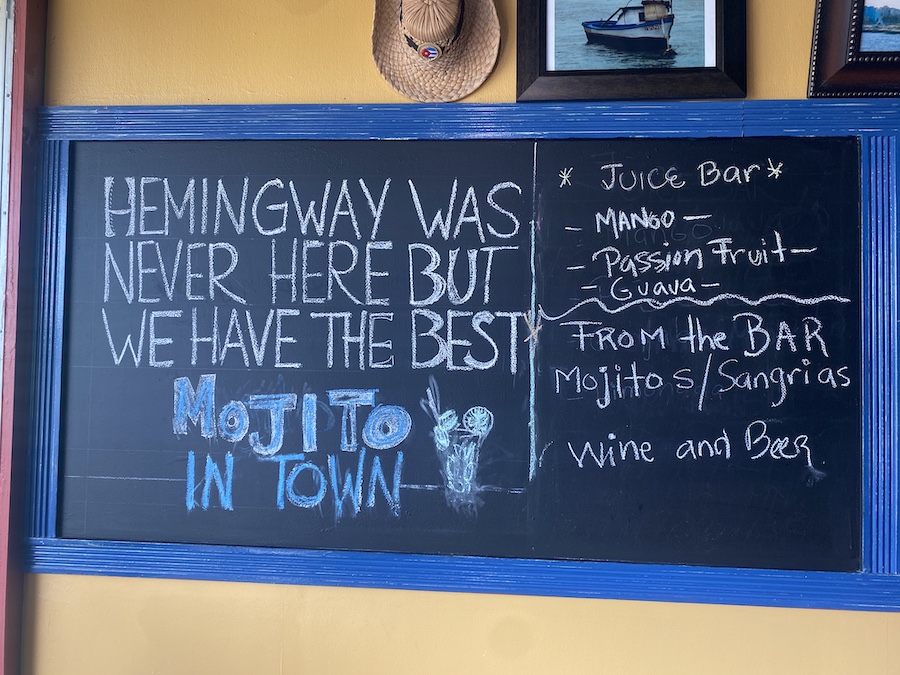 HEMINGWAY WAS
NEVER HERE BUT
WE HAVE THE BEST
MOJITO
IN TOWN
* JUICE Bar *
- MANGO -
- Passion Fruit -
- Guava -
FROM the BAR
Mojitos/Sangrias
Wine and Beer